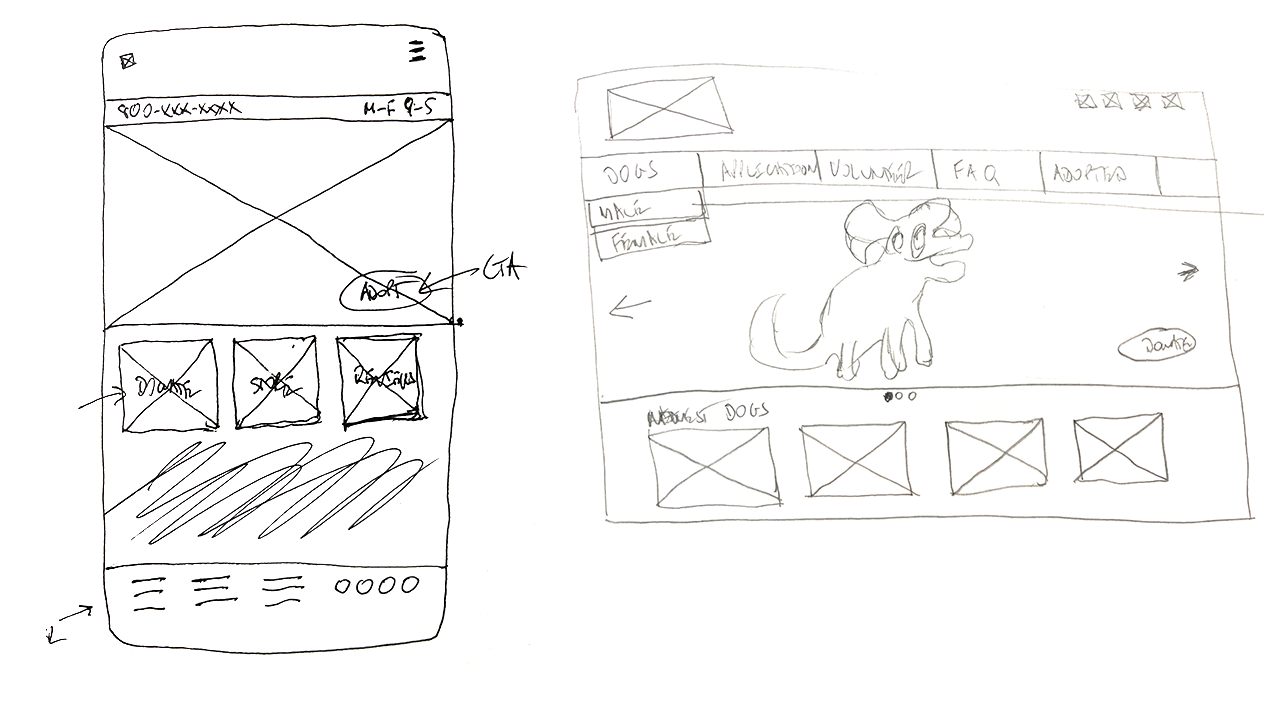 800-XXX-XXXX M-F 9-5
ADOPT
CTA
DONATE
STORE
DOGS
APPLICATION
VOLUNTEER
FAQ
ADOPTED
MALE
FEMALE
DONATE
NEWEST DOGS